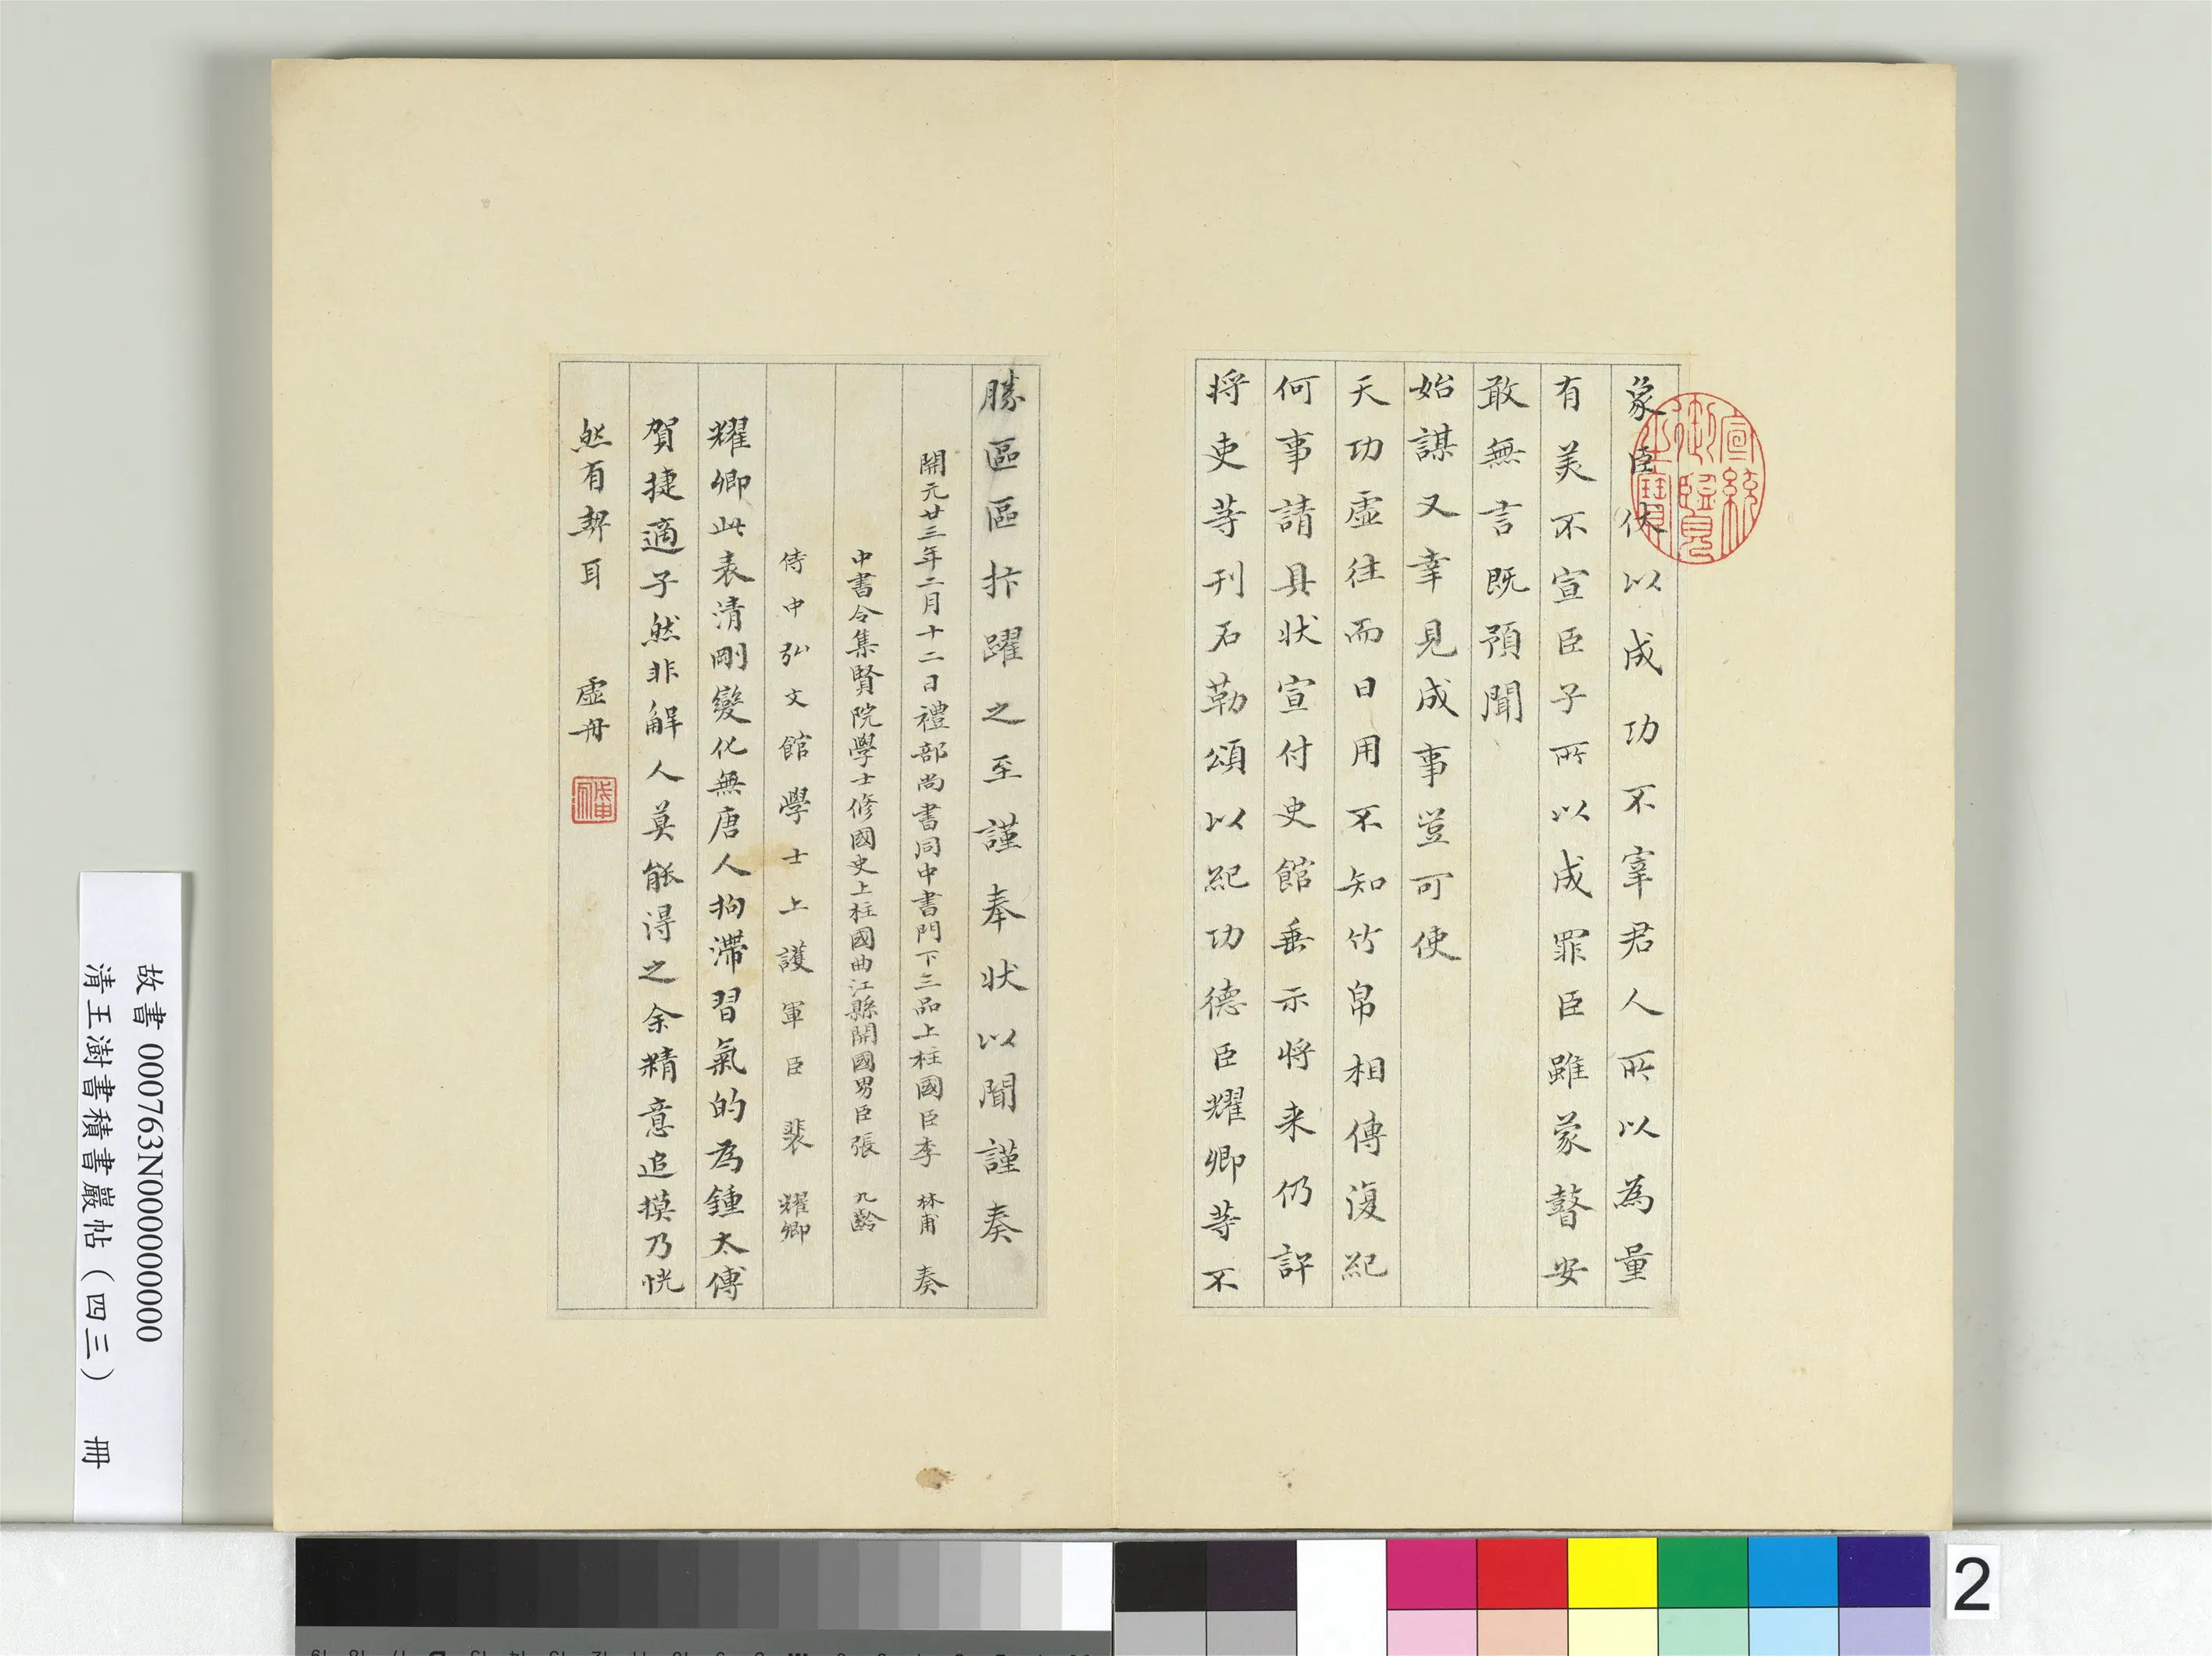 象臣伏以成功不宰君人所以為量
有美不宣臣子所以成罪臣雖蒙瞽安
敢無言既預聞
始謀又幸見成事豈可使
天功虛往而日用不知竹帛相傳復紀
何事請具狀宣付史館垂示將来仍許
将吏等刊石勒頌以紀功德臣耀卿等不
勝區區抃躍之至謹奉狀以聞謹奏
開元廿三年二月十二日禮部尚書同中書門下三品上柱國臣李林甫奏
中書令集賢院學士修國史上柱國曲江縣開國男臣張九齡
侍中弘文館學士上護軍臣裴耀卿
耀卿此表清剛變化無唐人拘滯習氣的為鍾太傅
賀捷適子然非解人莫能得之余精意追摸乃恍
然有契耳 虛舟
宣統御覽之寶
故書 000763N000000000
清王澍書積書巖帖（四三） 冊
2